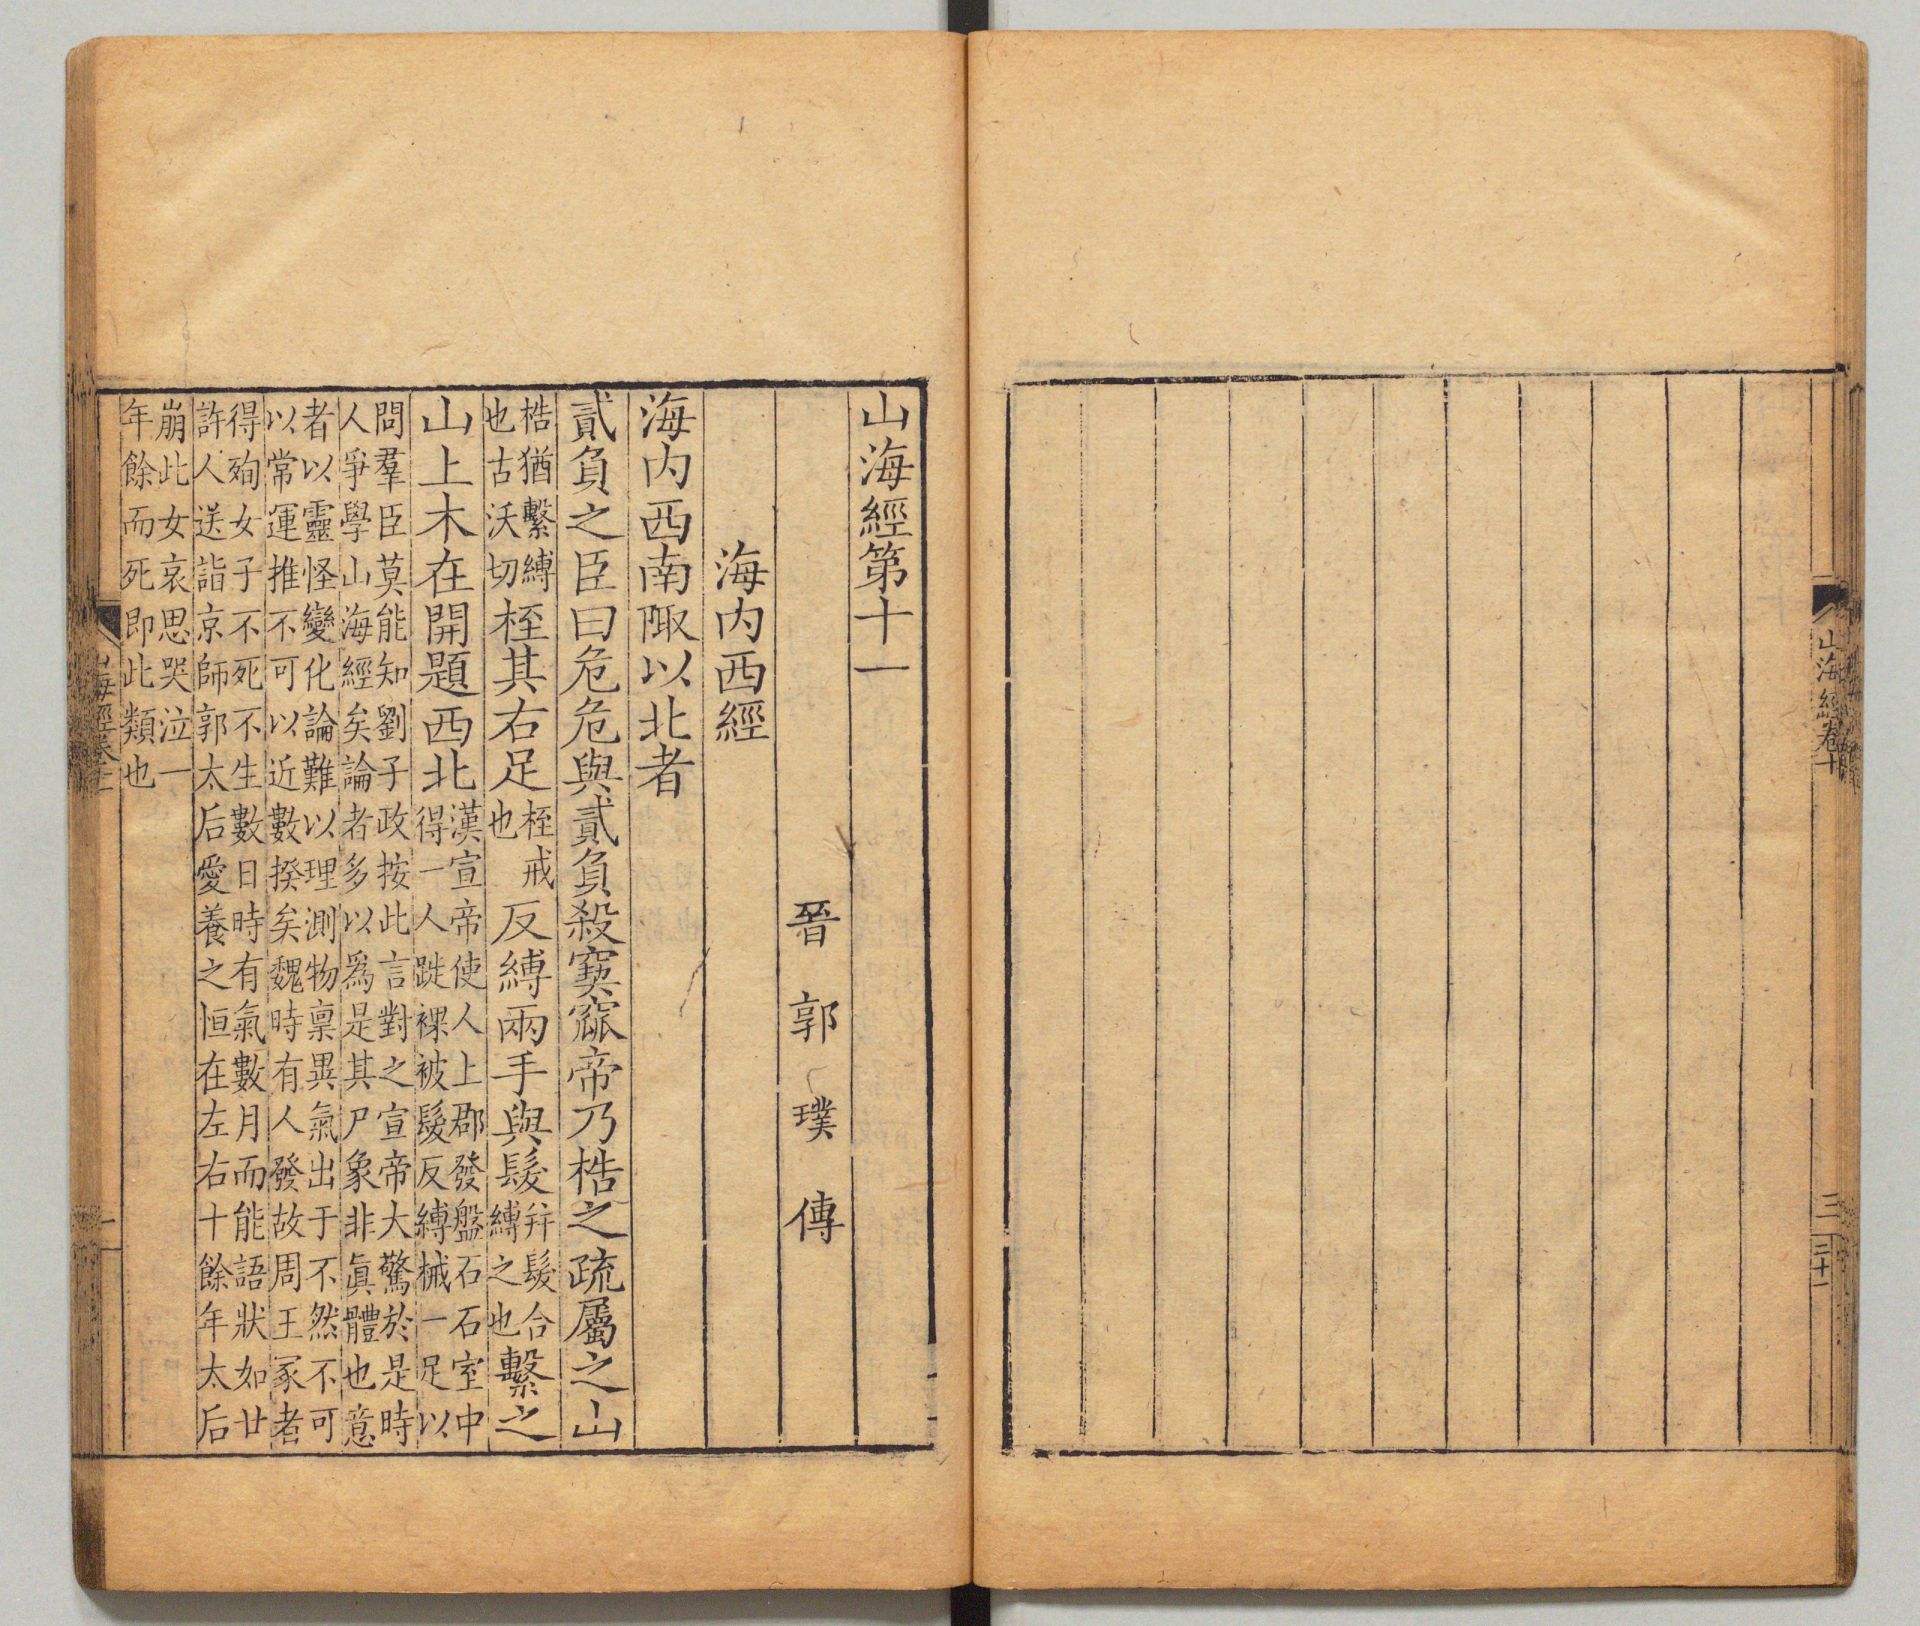 山海經卷十
三
二十一
山海經第十一
晉郭璞傳
海内西經
海内西南陬以北者
貳負之臣曰危危與貳負殺窫窳帝乃梏之疏屬之山
梏猶繫縛
也古沃切
桎其右足
桎戒
也
反縛兩手與髮
并髮合
縛之也
繫之
山上木在開題西北
漢宣帝使人上郡發盤石石室中
得一人跣裸被髮反縛械一足以
問羣臣莫能知劉子政按此言對之宣帝大驚於是時
人爭學山海經矣論者多以爲是其尸象非眞體也意
者以靈怪變化論難以理測物禀異氣出于不然不可
以常運推不可以近數揆矣魏時有人發故周王冢者
得殉女子不死不生數日時有氣數月而能語狀如廿
許人送詣京師郭太后愛養之恒在左右十餘年太后
崩此女哀思哭泣一
年餘而死即此類也
海經卷十一
一